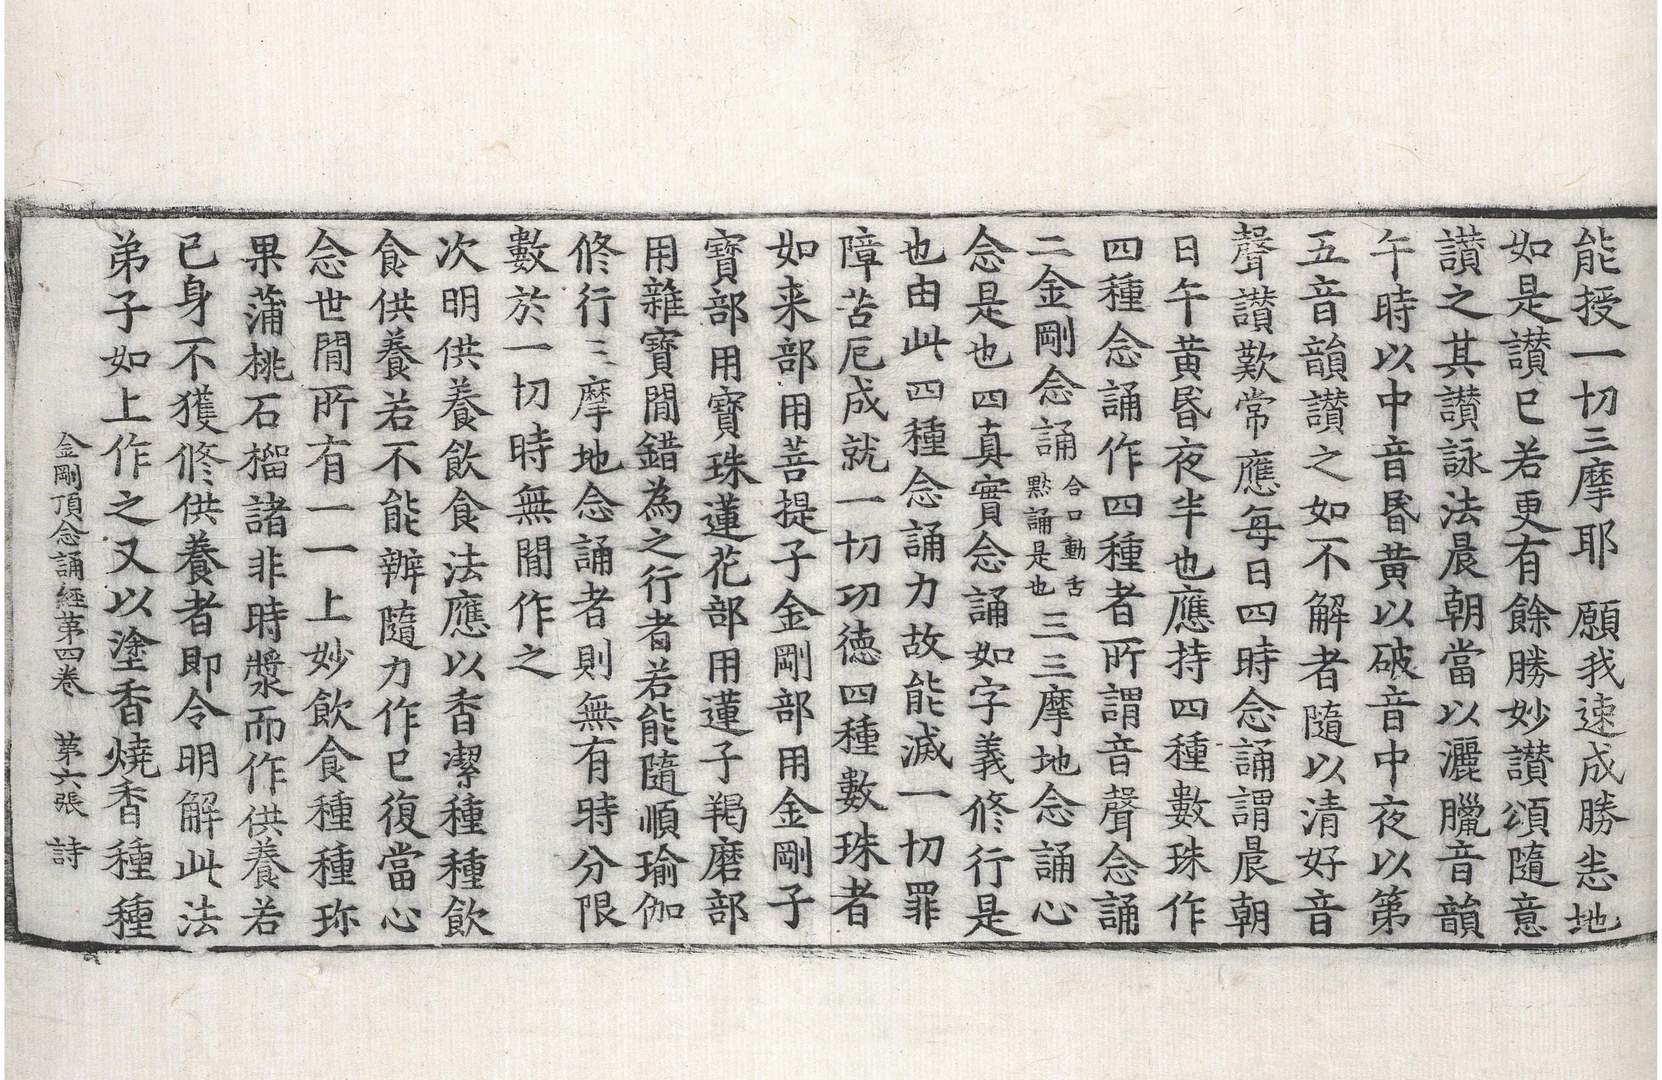 能授一切三摩耶　願我速成勝恚地
如是讃已若更有餘勝妙讃頌隨意
讃之其讃詠法晨朝當以灑臘音韻
午時以中音昬黄以破音中夜以第
五音韻讃之如不解者隨以清好音
聲讃歎常應每日四時念誦謂晨朝
日午黄昬夜半也應持四種數珠作
四種念誦作四種者所謂音聲念誦
二金剛念誦合口動舌默誦是也三三摩地念誦心
念是也四真實念誦如字義修行是
也由此四種念誦力故能滅一切罪
障苦厄成就一切功德四種數珠者
如来部用菩提子金剛部用金剛子
寶部用寶珠蓮花部用蓮子羯磨部
用雜寶間錯為之行者若能隨順瑜伽
修行三摩地念誦者則無有時分限
數於一切時無間作之
次明供養飲食法應以香潔種種飲
食供養若不能辦隨力作已復當心
念世間所有一一上妙飲食種種珎
果蒲桃石榴諸非時漿而作供養若
已身不獲修供養者即令明解此法
弟子如上作之又以塗香燒香種種
金剛頂念誦經苐四卷　苐六張　詩